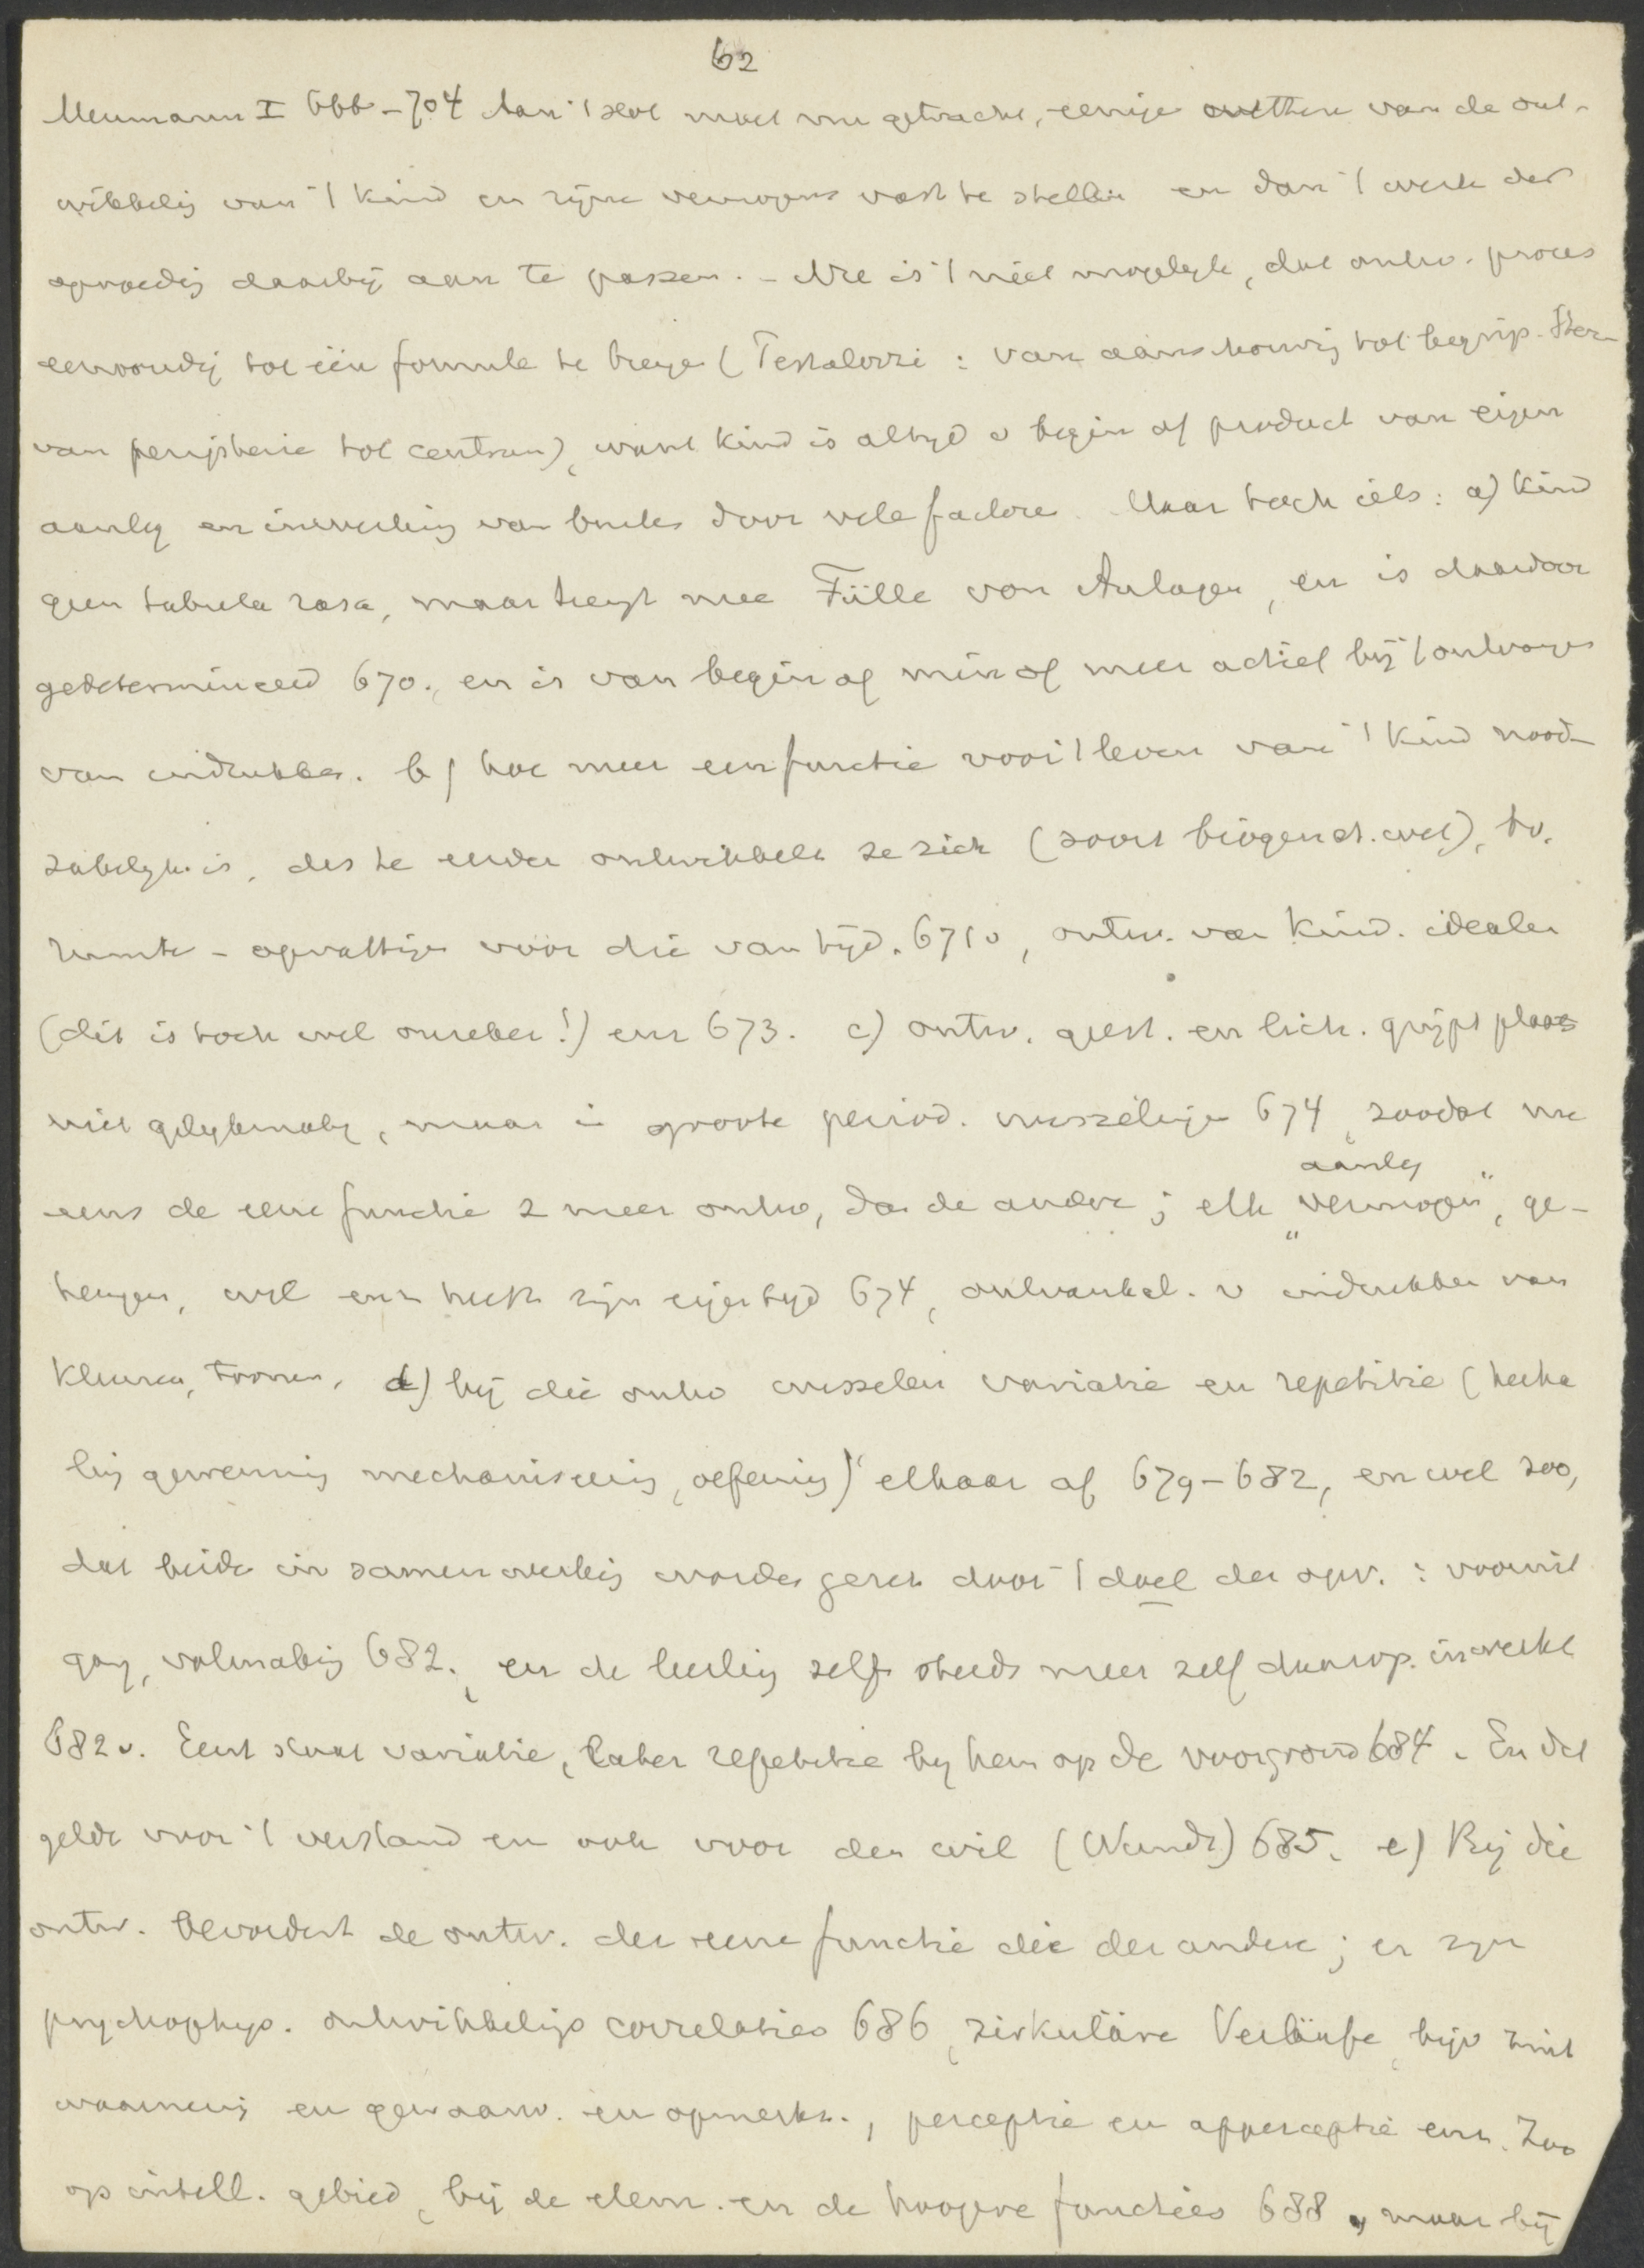 62
Meumann I 666-704 Aan 't slot moet nu getracht, eenige wetten van de ont-
wikkelig van 't kind en zijne vermogens vast te stellen en dan 't werk der
opvoedig daarbij aan te passen. - Nu is 't niet mogelijk, dat ontw. proces
eenvoudig tot één formule te brenge (Pestalozzi : van aanschouwig tot begrip.
van peripherie tot centrum), want kind is altijd v begin af product van eigen
aanleg en inwerking van buiten door vele factore. Maar toch iets: a) kind
geen tabula rasa, maar brengt mee Fülle von Anlagen, en is daardoor
gedetermineerd 670., en is van begin af min of meer actief bij 't ontvangen
van indrukken. b) hoe meer een functie voor 't leven van 't kind nood-
zakelijk is, des te eerder ontwikkelt ze zich (soort biogenet. wet), bv.
ruimte-opvattige vóór die van tijd. 671v, ontw. van kind. idealen
(dit is toch wel onzeker!) enz 673. c) ontw. geest. en lich. grijpt plaats
niet gelijkmatig, maar in groote period. wisselinge 674, zoodat nu
eens de eene functie z meer ontw, dan de andere ; elk "vermogen", ge-
aanleg
heugen, wil enz heeft zijn eigen tijd 674, ontvankel. v indrukken van
kleuren, tonen. d) bij die ontw wisselen variatie en repetitie (herha
lig gewennig mechaniseerig, oefenig) elkaar af 679-682, en wel zoo,
dat beide in samenwerkig worden gezet door 't doel der opv. : vooruit
gang, volmakig 682., en de leerling zelf steeds meer zelf daarop inwerkt
682v. Eerst staat variatie, later repetitie bij hem op de voorgrond 684. En dat
geldt voor 't verstand en ook voor den wil (Wundt) 685. e) Bij die
ontw. bevordert de ontw. der eene functie die der andere ; er zijn
psychophys. ontwikkeligs correlaties 686, zirkuläre Verläufe, bijv zint
waarnemig en gewaarw. en opmerkz., perceptie en apperceptie enz. Zoo
op intell. gebied, bij de elem. en de hoogere functies 688, maar bij